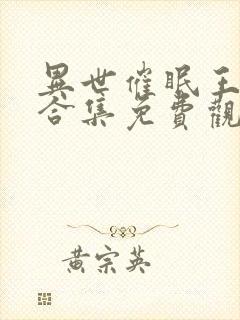 異世催眠王
合集免費觀
黃宗英